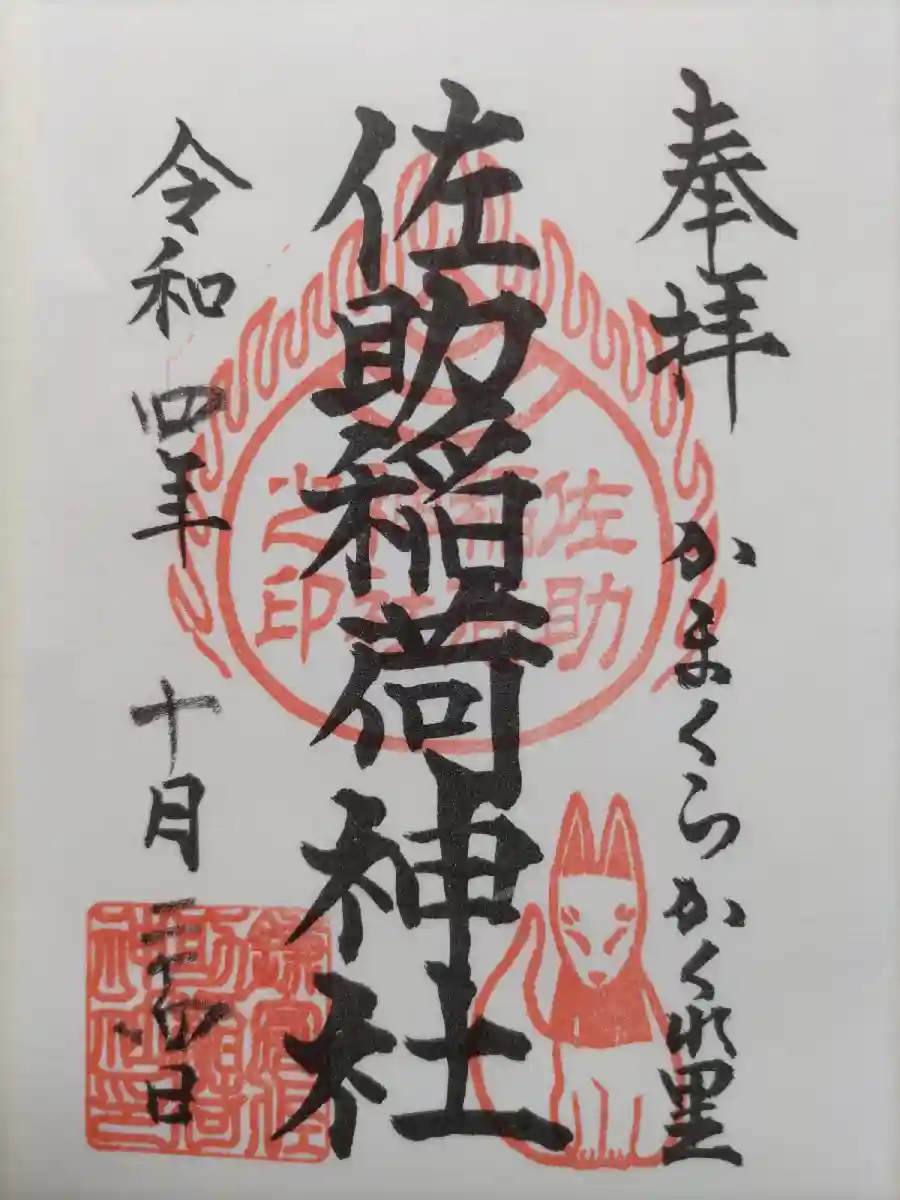 奉拝
かまくらかくれ里
佐助稲荷神社
令和四年十月二十四日
佐助
稲荷
神社
之印